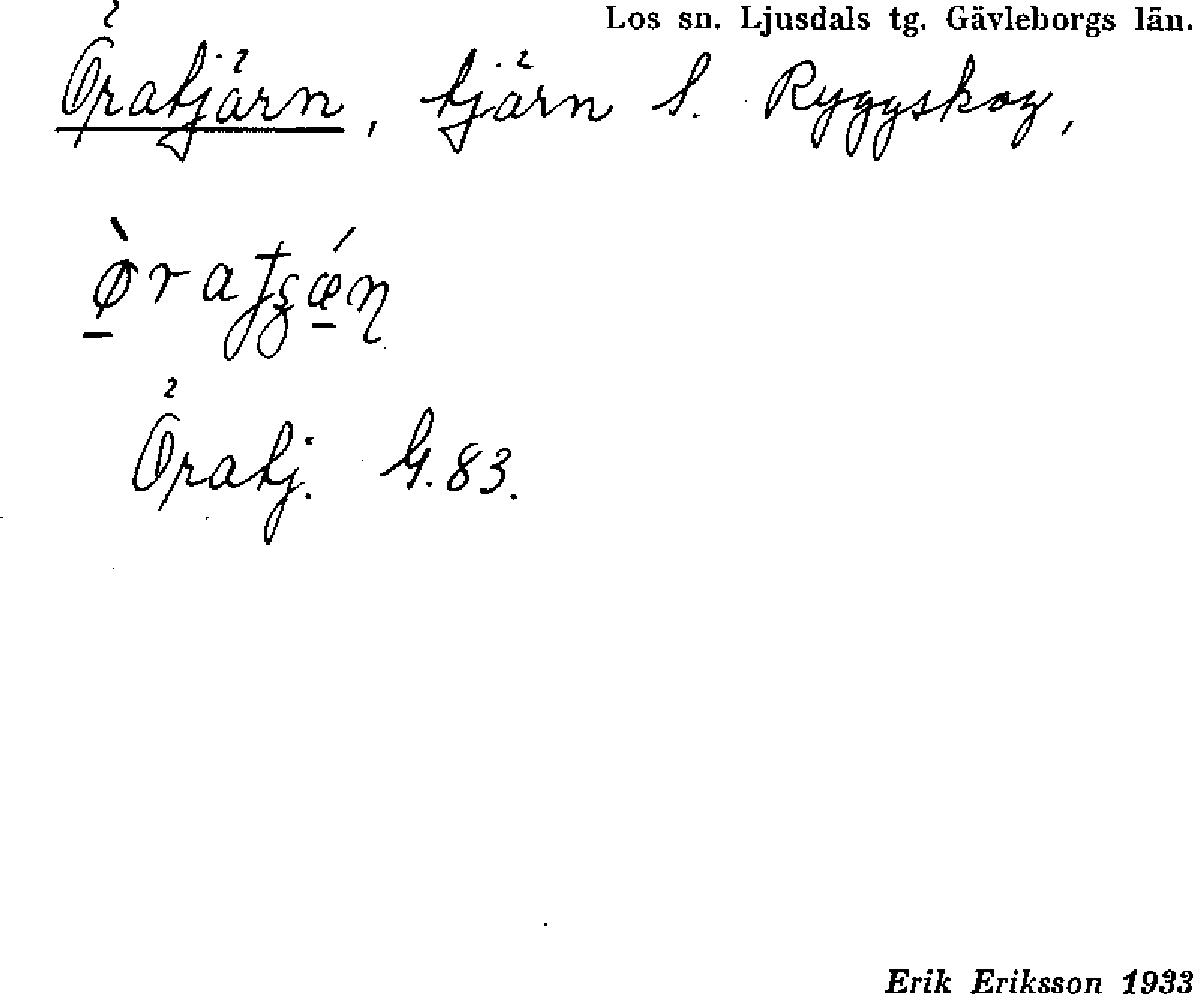 Los sn. Ljusdals tg. Gävleborgs län.
Öratjärn, tjärn S. Ryggskog,
Öratj. G. 83.
Erik Eriksson 1933